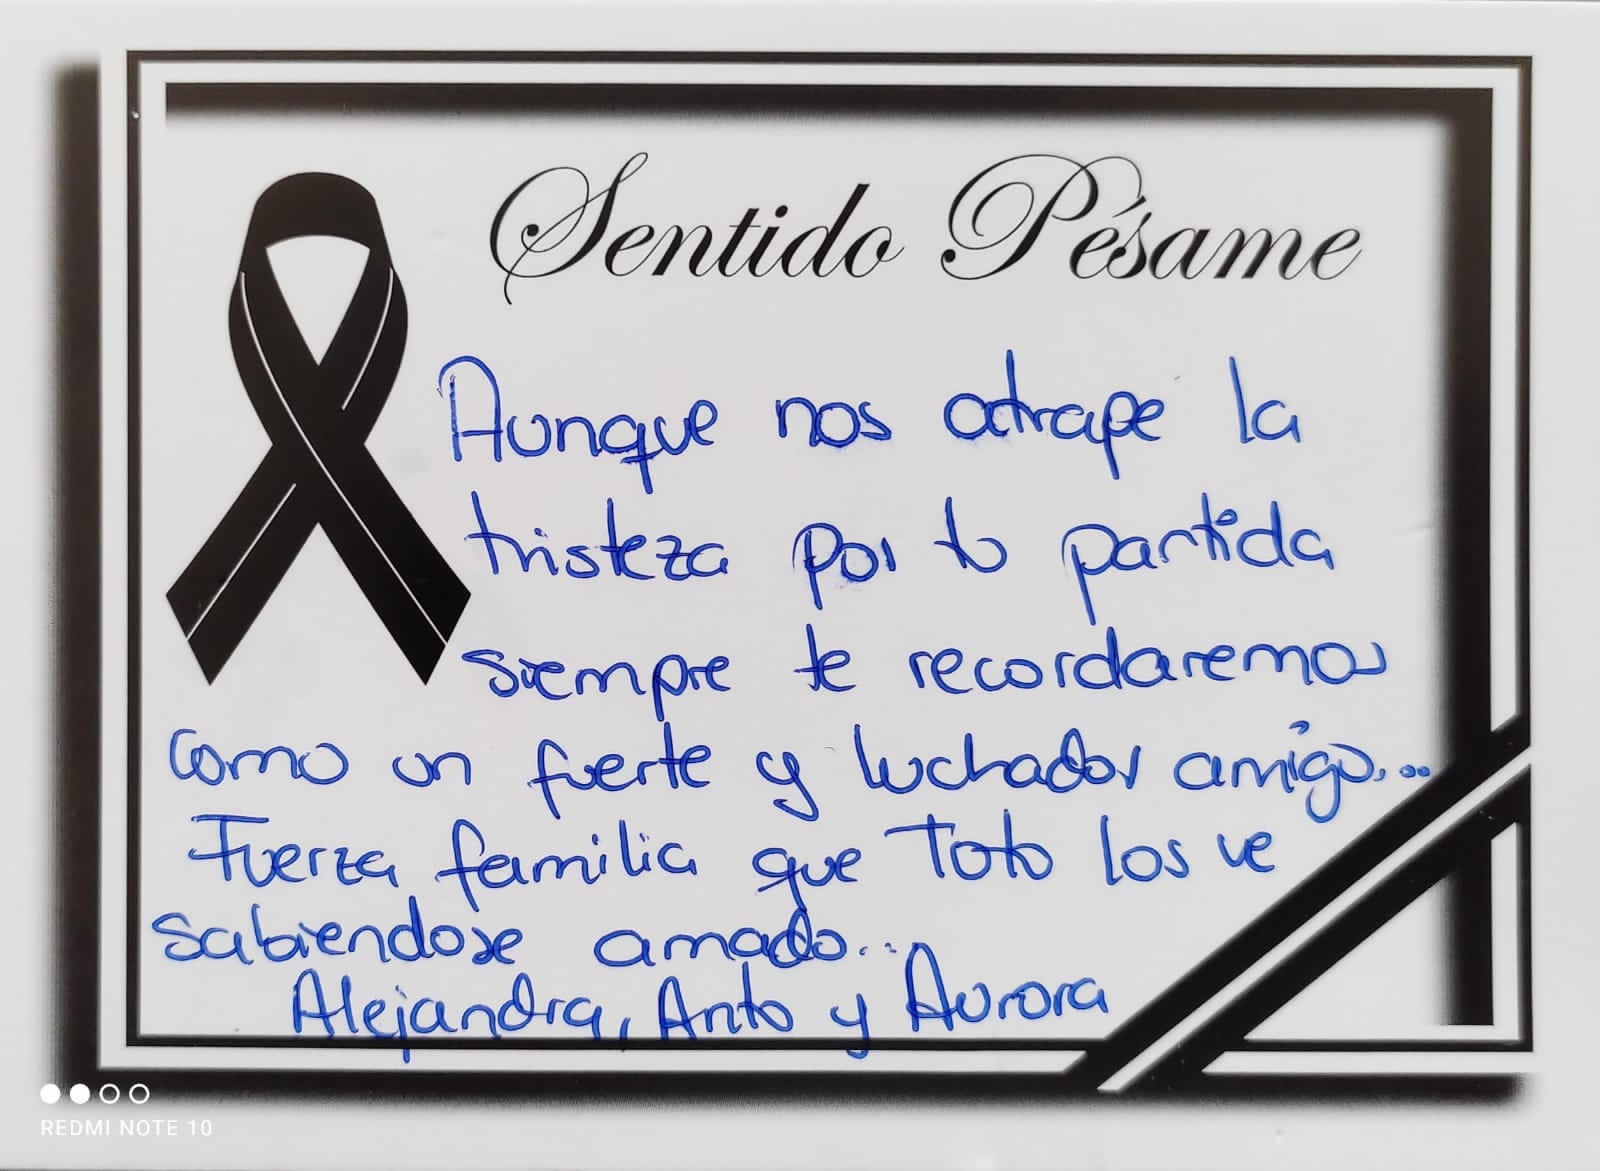 Sentido Pésame
Aunque nos atrape la
tristeza por tu partida
siempre te recordaremos
como un fuerte y luchador amigo...
Fuerza familia que Toto los ve
sabiendose amado...
Alejandra, Anto y Aurora
REDMI NOTE 10